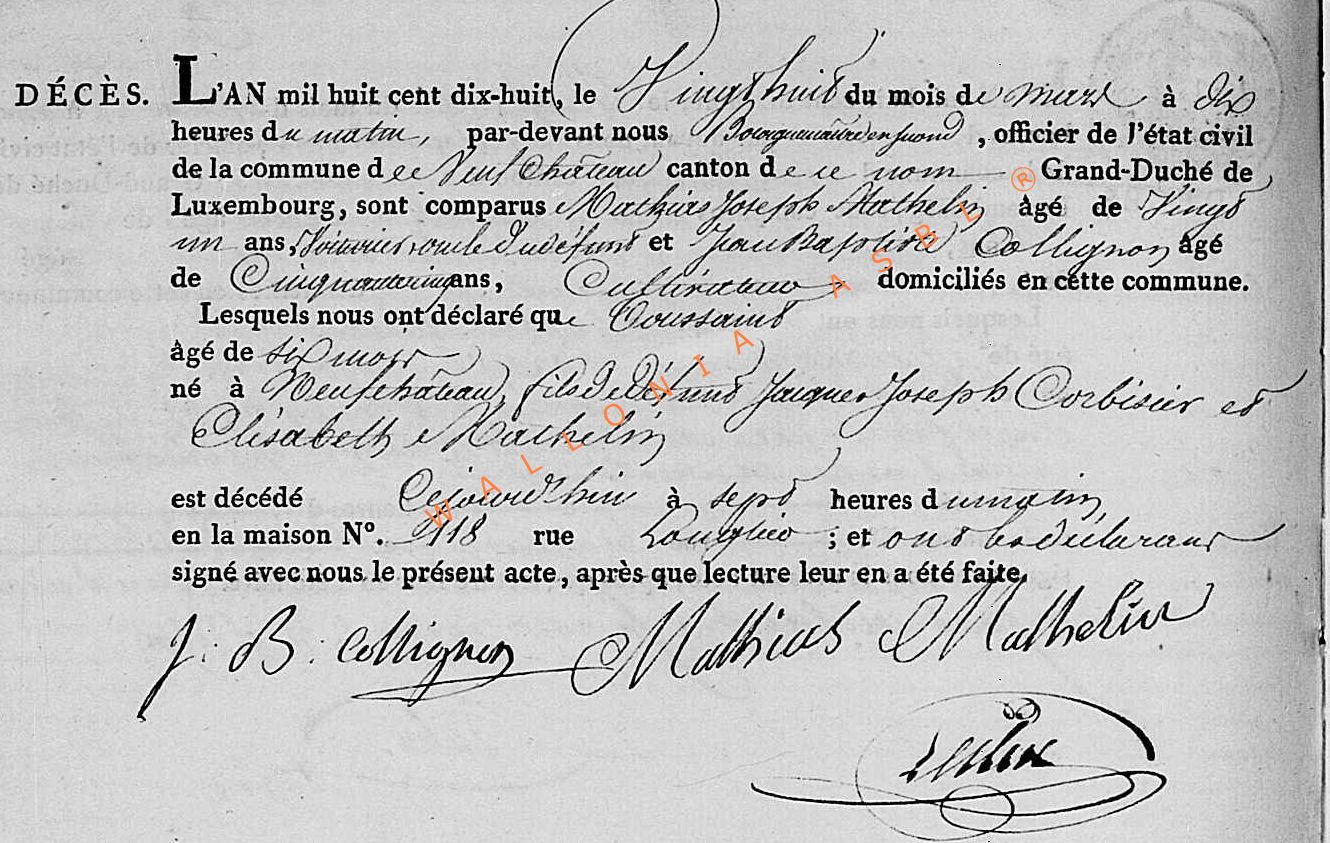 DÉCÈS. L'AN mil huit cent dix-huit, le Vingt huit du mois de mars à dix
heures du matin, par-devant nous Bourguemaitre en second, officier de l'état civil
de la commune de Neufchâteau canton de ce nom Grand-Duché de
Luxembourg, sont comparus Mathias Joseph Mathelin âgé de Vingt
un ans, Voiturier oncle du défunt et Jean Baptiste Collignon âgé
de Cinquante cinq ans, Cultivateur domiciliés en cette commune.
Lesquels nous ont déclaré que Toussaint
âgé de six mois
né à Neufchâteau, fils de défunt Jacques Joseph Corbisier et
Elisabeth Mathelin
est décédé Cejourdhui à sept heures du matin
en la maison N°. 118 rue ; et ont les déclarans
signé avec nous le présent acte, après que lecture leur en a été faite.
J. B. Collignon Mathias Mathelin
WALLONIA ASBL ®